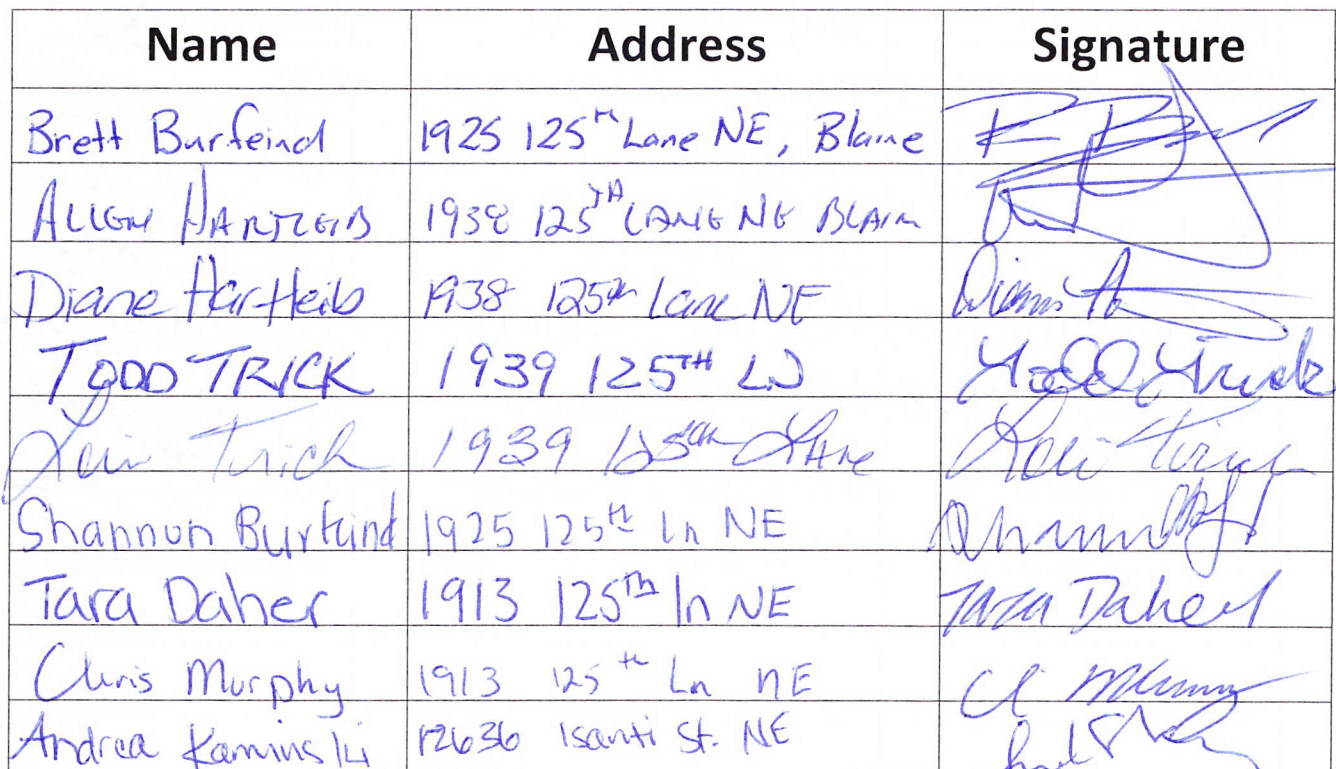 Name Address Signature
Brett Burfeind 1925 125th Lane NE, Blaine
ALLEN HARTLEIB 1938 125TH LANE NE BLAIN
Diane Hartleib 1938 125th Lane NE
TODD TRICK 1939 125TH LN Todd Trick
Lori Trick 1939 125th LAne Lori Trick
Shannon Burfeind 1925 125th Ln NE
Tara Daher 1913 125th ln NE Tara Daher
Chris Murphy 1913 125th Ln NE
Andrea Kaminski 12636 Isanti St. NE